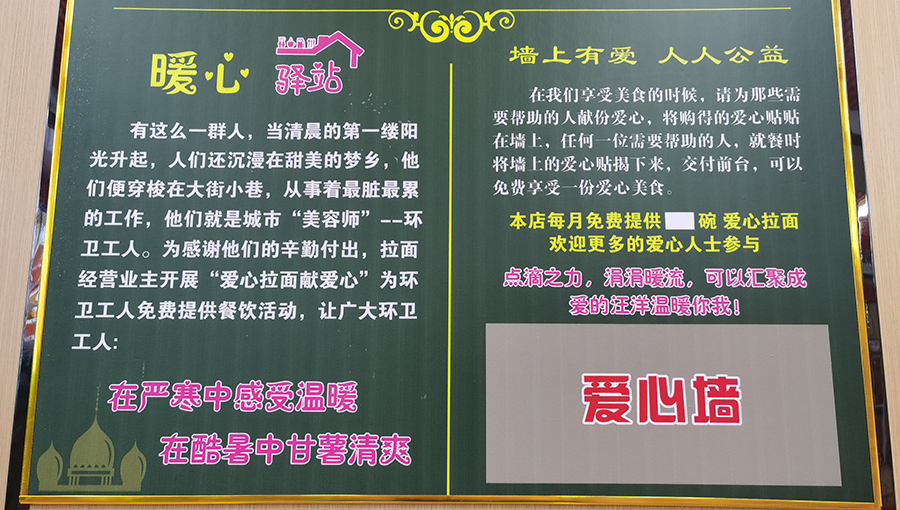 暖心 驿站
有这么一群人，当清晨的第一缕阳
光升起，人们还沉漫在甜美的梦乡，他
们便穿梭在大街小巷，从事着最脏最累
的工作，他们就是城市“美容师”--环
卫工人。为感谢他们的辛勤付出，拉面
经营业主开展“爱心拉面献爱心”为环
卫工人免费提供餐饮活动，让广大环卫
工人:
在严寒中感受温暖
在酷暑中甘薯清爽
墙上有爱 人人公益
在我们享受美食的时候，请为那些需
要帮助的人献份爱心，将购得的爱心贴贴
在墙上，任何一位需要帮助的人，就餐时
将墙上的爱心贴揭下来，交付前台，可以
免费享受一份爱心美食。
本店每月免费提供 碗 爱心拉面
欢迎更多的爱心人士参与
点滴之力，涓涓暖流，可以汇聚成
爱的汪洋温暖你我！
爱心墙